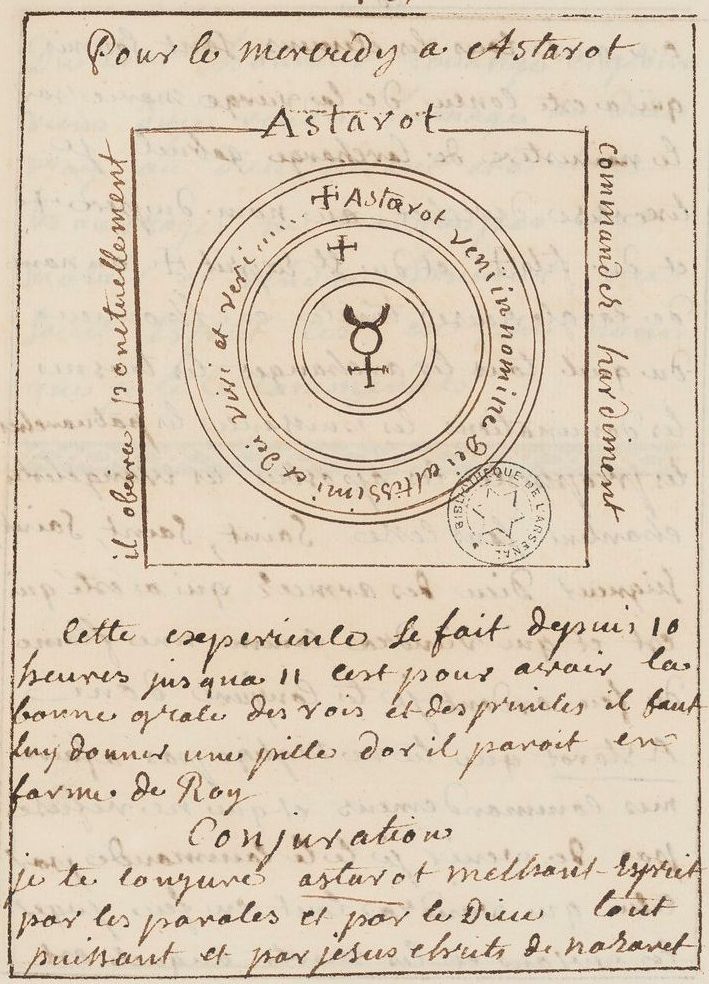 Pour le mercredy a Astarot
Astarot
il obeira ponctuellement
commander hardiment
+ Astarot veni in nomine Dei altissimi et Dei vivi et veri
BIBLIOTHEQUE DE L'ARSENAL
Cette experience se fait depuis 10
heures jusqua 11 cest pour avoir la
bonne grace des rois et des princes il faut
luy donner une pille dor il paroit en
forme de Roy
Conjuration
je te conjure astarot meschant Esprit
par les paroles et par le Dieu tout
puissant et par jesus christ de nazaret